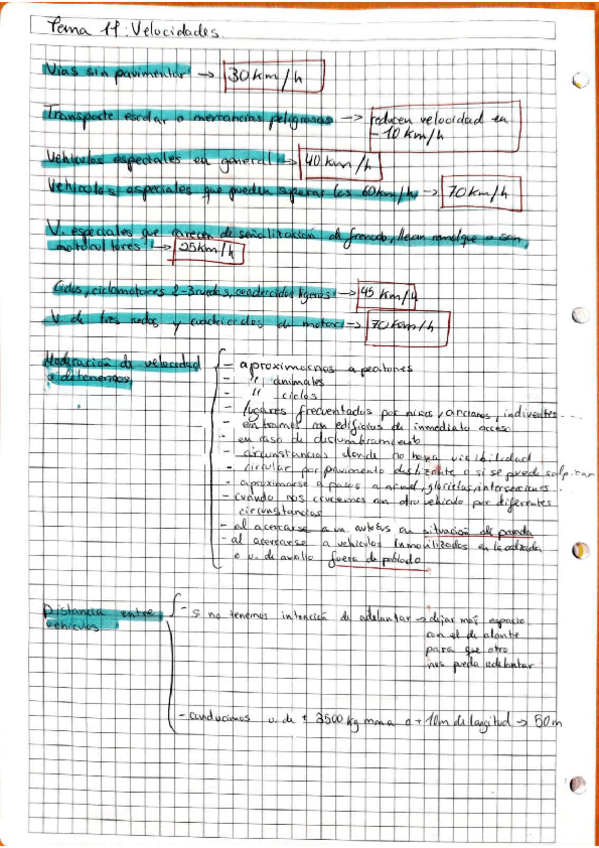 Tema 11: Velocidades.
Vías sin pavimentar → 30 km/h
Transporte escolar o mercancías peligrosas → reducen velocidad en
- 10 km/h
Vehículos especiales en general → 40 km/h
Vehículos especiales que pueden superar los 60 km/h → 70 km/h
V. especiales que carecen de señalización de frenado, llevan remolque o son
motocultores → 25 km/h
Ciclos, ciclomotores 2-3 ruedas, cuadriciclos ligeros → 45 km/h
V. de tres ruedas y cuadriciclos de motor → 70 km/h
Moderación de velocidad
o detenernos,
- aproximarnos a peatones
- " animales
- " ciclos
- lugares frecuentados por niños, ancianos, indiventes
- entramos en edificios de inmediato acceso
- en caso de deslumbramiento
- circunstancias donde no haya visibilidad
- circular por pavimento deslizante o si se puede salpicar
- aproximarse a pasos a nivel, glorietas, intersecciones.
- cuando nos crucemos con otro vehículo por diferentes
circunstancias
- al acercarse a un autobús en situación de parada
- al acercarse a vehículos inmovilizados en la calzada
o v. de auxilio fuera de poblado
Distancia entre
vehículos
- si no tenemos intención de adelantar → dejar más espacio
con el de alante
para que otro
nos pueda adelantar
- conducimos v. de + 3500 kg mma o + 10m de longitud → 50 m